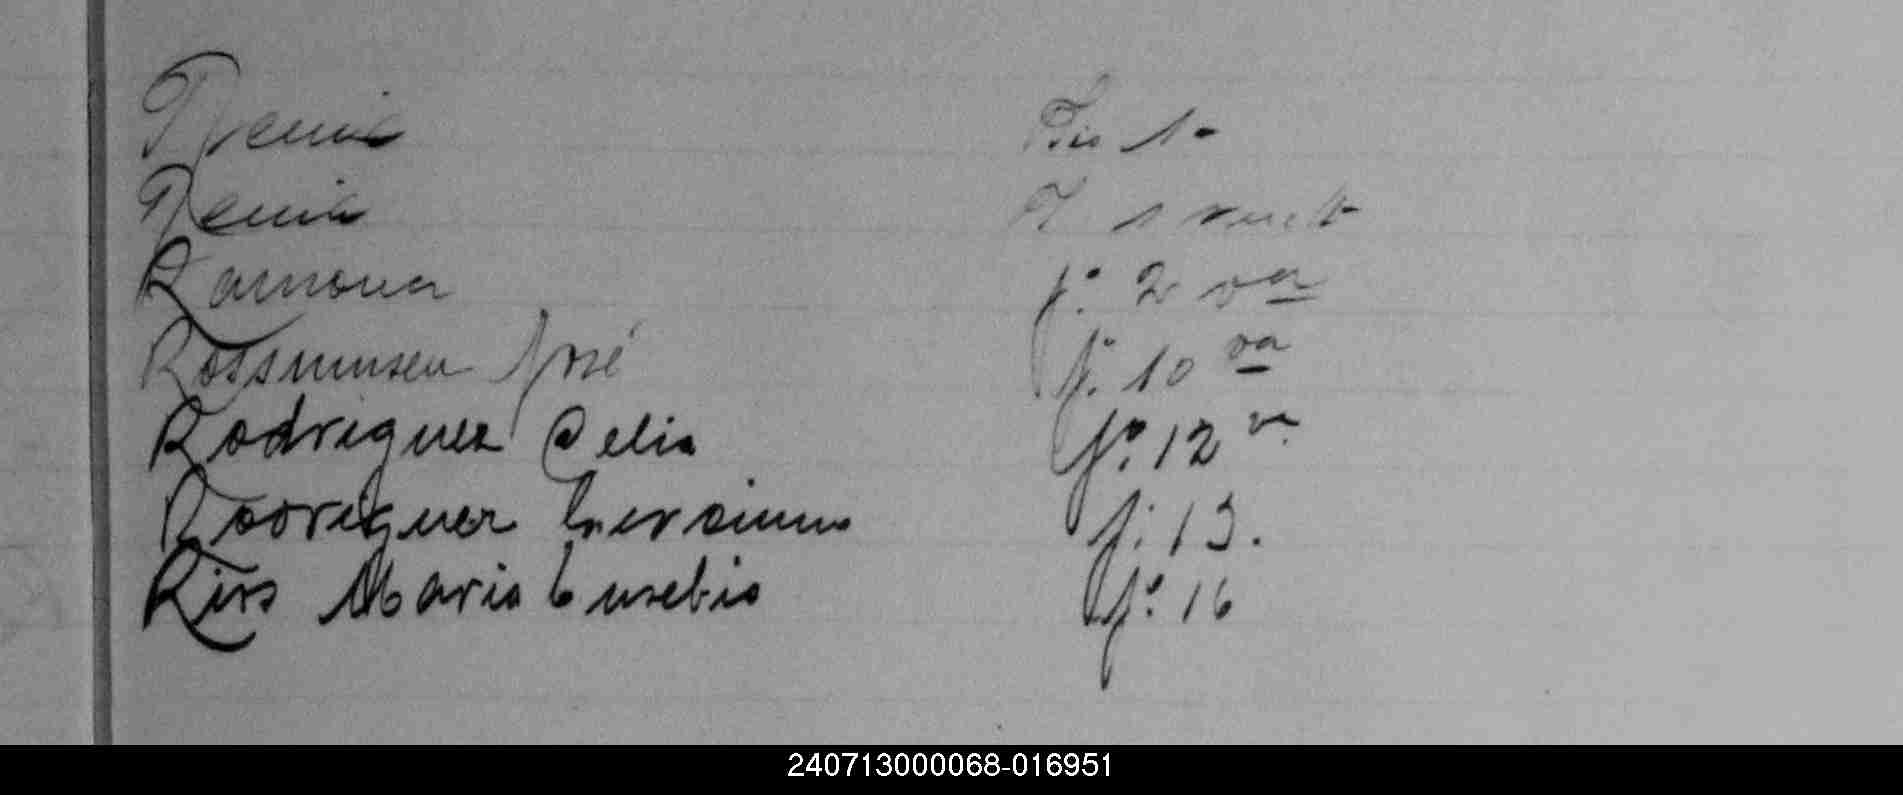 Remi Fio 1-
Remi F 1 vuelt
Ramona fº. 2 va
Rossmunsen José fº. 10 va
Rodriguez Celia fº. 12 va
Rodriguez fº: 13.
Rios Maria Eusebia fº. 16
240713000068-016951